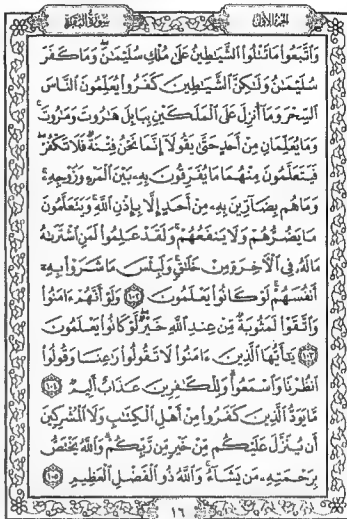 الجزء الأول سورة البقرة
وَاتَّبَعُوا مَا تَتْلُوا الشَّيَاطِينُ عَلَىٰ مُلْكِ سُلَيْمَانَ وَمَا كَفَرَ
سُلَيْمَانُ وَلَٰكِنَّ الشَّيَاطِينَ كَفَرُوا يُعَلِّمُونَ النَّاسَ
السِّحْرَ وَمَا أُنزِلَ عَلَى الْمَلَكَيْنِ بِبَابِلَ هَارُوتَ وَمَارُوتَ
وَمَا يُعَلِّمَانِ مِنْ أَحَدٍ حَتَّىٰ يَقُولَا إِنَّمَا نَحْنُ فِتْنَةٌ فَلَا تَكْفُرْ
فَيَتَعَلَّمُونَ مِنْهُمَا مَا يُفَرِّقُونَ بِهِ بَيْنَ الْمَرْءِ وَزَوْجِهِ
وَمَا هُم بِضَارِّينَ بِهِ مِنْ أَحَدٍ إِلَّا بِإِذْنِ اللَّهِ وَيَتَعَلَّمُونَ
مَا يَضُرُّهُمْ وَلَا يَنفَعُهُمْ وَلَقَدْ عَلِمُوا لَمَنِ اشْتَرَاهُ
مَا لَهُ فِي الْآخِرَةِ مِنْ خَلَاقٍ وَلَبِئْسَ مَا شَرَوْا بِهِ
أَنفُسَهُمْ لَوْ كَانُوا يَعْلَمُونَ ١٠٢ وَلَوْ أَنَّهُمْ ءَامَنُوا
وَاتَّقَوْا لَمَثُوبَةٌ مِّنْ عِندِ اللَّهِ خَيْرٌ لَّوْ كَانُوا يَعْلَمُونَ
١٠٣ يَٰأَيُّهَا الَّذِينَ ءَامَنُوا لَا تَقُولُوا رَاعِنَا وَقُولُوا
انظُرْنَا وَاسْمَعُوا وَلِلْكَافِرِينَ عَذَابٌ أَلِيمٌ ١٠٤
مَّا يَوَدُّ الَّذِينَ كَفَرُوا مِنْ أَهْلِ الْكِتَابِ وَلَا الْمُشْرِكِينَ
أَن يُنَزَّلَ عَلَيْكُم مِّنْ خَيْرٍ مِّن رَّبِّكُمْ وَاللَّهُ يَخْتَصُّ
بِرَحْمَتِهِ مَن يَشَاءُ وَاللَّهُ ذُو الْفَضْلِ الْعَظِيمِ ١٠٥
١٦